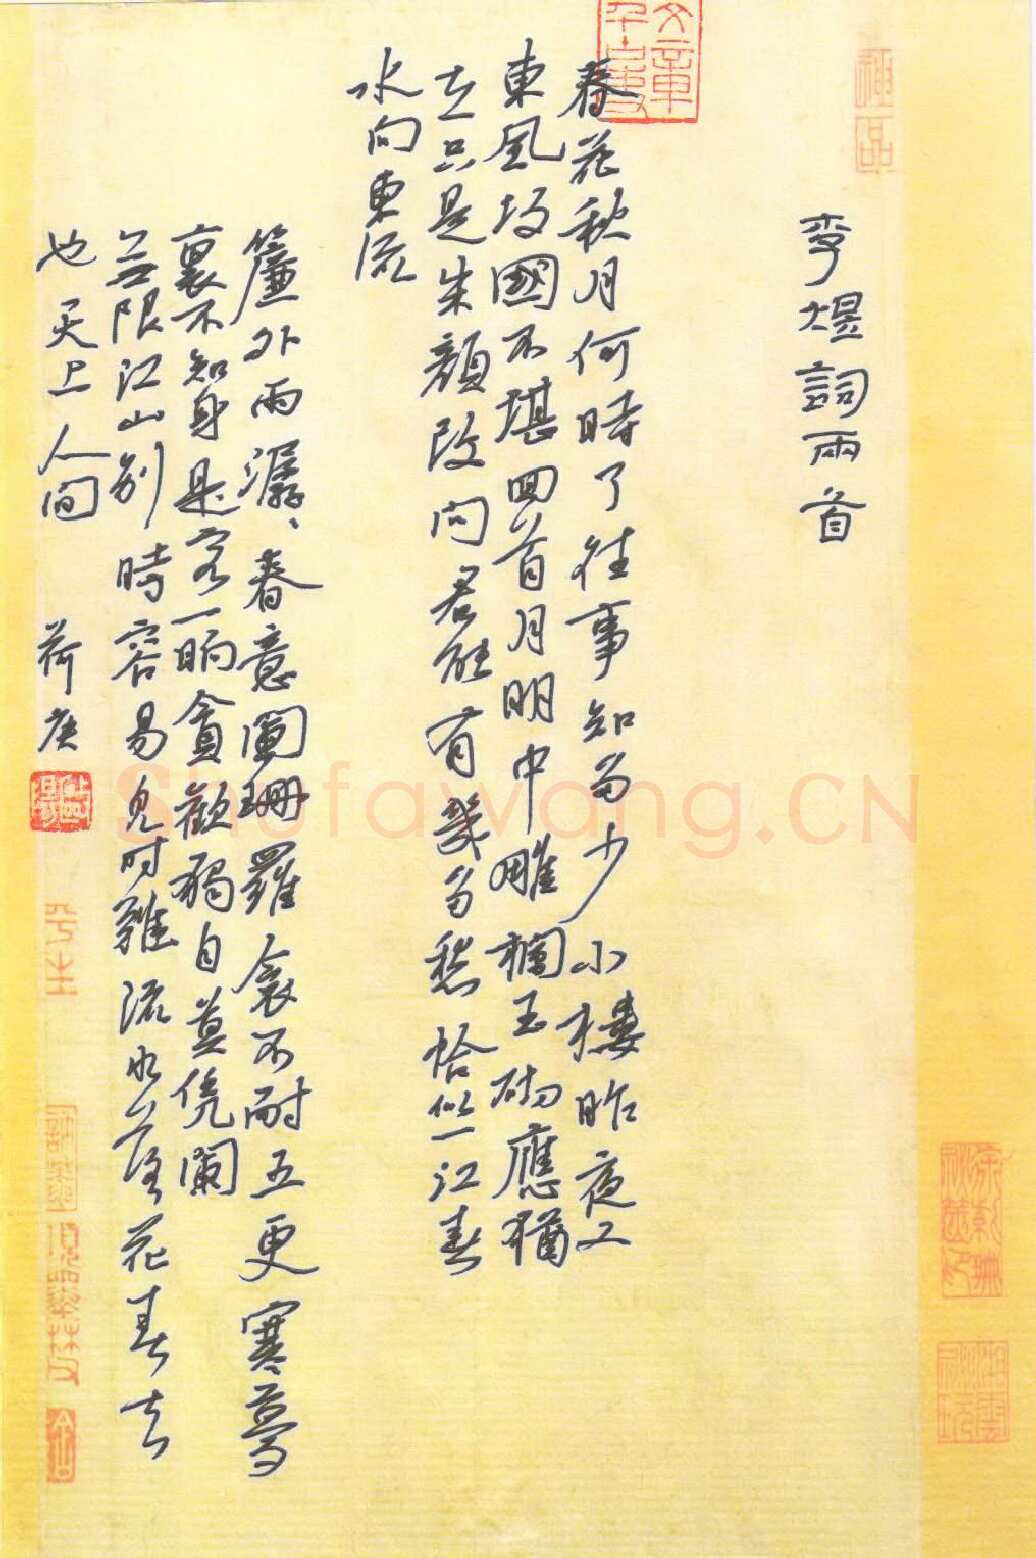 李煜詞兩首
文章千古事
春花秋月何時了往事知多少小樓昨夜又
東風故國不堪回首月明中雕欄玉砌應猶
在只是朱顏改問君能有幾多愁恰似一江春
水向東流
簾外雨潺、春意闌珊羅衾不耐五更寒夢
裏不知身是客一晌貪歡獨自莫凭闌
無限江山別時容易見时難流水落花春去
也天上人間 荷
Shufawang.CN